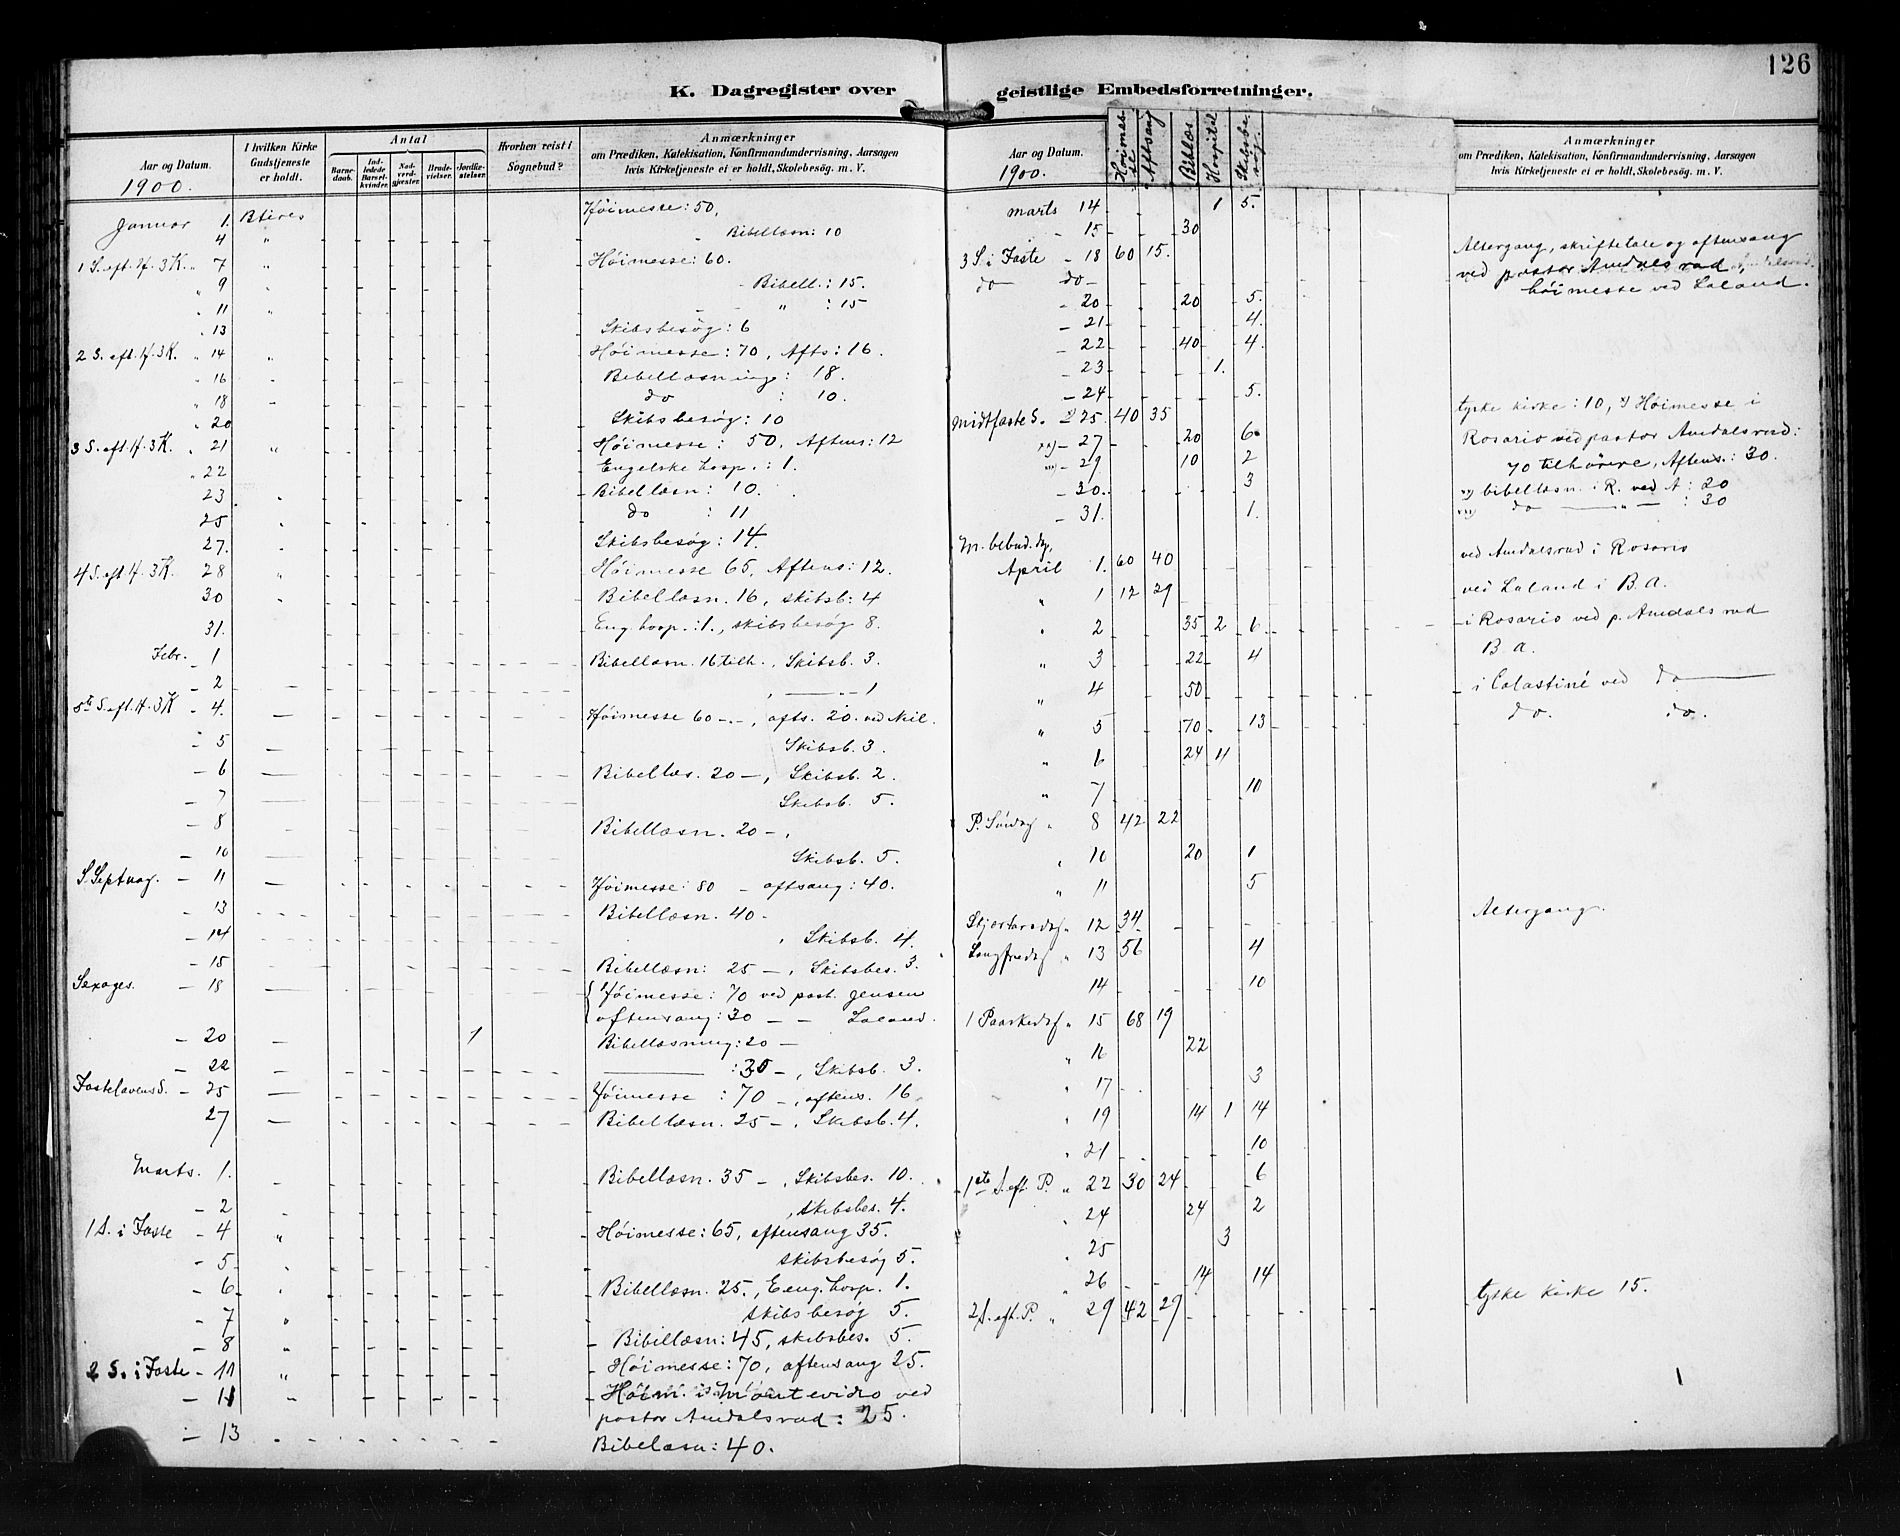 126
K. Dagregister over geistlige Embedsforretninger.
Aar og Datum. 1900.
I hvilken Kirke Gudstjeneste er holdt.
Antal
Barnedaab.
Indledede Barselkvinder.
Nadverdgjester.
Brudevielser.
Jordfæstelser.
Hvorhen reist i Sognebud?
Anmærkninger
om Prædiken, Katekisation, Konfirmandundervisning, Aarsagen
hvis Kirketjeneste ei er holdt, Skolebesøg. m. V.
Januar 1. B Aires Höimesse: 50,
4 " Bibellæsn: 10
1 S. eft. H. 3 K. " 7 " Höimesse: 60.
" 9 " Bibell.: 15.
" 11 " " : 15
" 13 Skibsbesög: 6
2 S. eft. H. 3 K. " 14 " Höimesse: 70, Afts: 16.
" 16 Bibellæsning: 18.
" 18 do : 10.
" 20 Skibsbesög: 10
3 S. eft. H. 3 K. " 21 " Höimesse: 50, Aftens: 12
" 22 Engelske hosp.: 1.
23 " Bibellæsn: 10.
25 " do : 11
27. " Skibsbesög: 14
4 S. eft. H. 3 K. 28 " Höimesse 65, Aftens: 12.
30 " Bibellæsn. 16, skibsb: 4
31. Eng. hosp.: 1., skibsbesög 8.
Febr. - 1 Bibellæsn. 16 tilh., Skibsb. 3.
- 2 — , — - - 1
5te S. eft. H. 3 K - 4. — Höimesse 60 -, afts. 20. ved
- 5 — Skibsb. 3.
- 6 — Bibellæs. 20 -, Skibsb. 2.
- 7 — Skibsb. 5.
- 8 Bibellæsn. 20 -,
- 10 Skibsb. 5.
S. Septuag. - 11 — Höimesse: 80 - aftsang: 40.
- 13 Bibellæsn. 40 -
- 14 , Skibsb. 4.
- 15 Bibellæsn: 25 -, Skibsbes. 3.
Sexages. - 18 — Höimesse: 70 ved past. Jensen
aftensang: 30 - - Laland.
- 20 - 1 Bibellæsning: 20 -
- 22 — : 30 -, Skibsb. 3.
Fastelavens S. - 25 — Höimesse : 70 -, aftens. 16
27 — Bibellæsn. 25 -, Skibsb. 4.
Marts. 1. - Bibellæsn. 35 -, Skibsbes. 10.
- 2 - , skibsbes. 4.
1 S. i Faste - 4 " Höimesse: 65, aftensang 35.
- 5 " skibsbesög 5.
- 6 " Bibellæsn. 25., Eeng. hosp. 1.
- 7 " skibsbesög 5.
- 8 " Bibellæsn: 45, skibsbes. 5.
2 S. i Faste - 11 " Höimesse: 70, aftensang 25.
- 11 " Höim. i Montevideo ved
pastor Amdalsrud: 25.
- 13 Bibelæsn: 40.
Aar og Datum. 1900.
Höimesse
Aftsang
Biblæs.
Hospital
Skibsbesög.
Anmærkninger
om Prædiken, Katekisation, Konfirmandundervisning, Aarsagen
hvis Kirketjeneste ei er holdt, Skolebesøg. m. V.
Marts 14 1 5.
- 15 30
3 S. i Faste - 18 60 15. Altergang, skriftetale og aftensang
do do - ved pastor Amdalsrud,
höimesse ved Laland.
- 20 20 5.
- 21 4.
- 22 40 4.
- 23 1.
- 24 5.
Midtfaste S. 25. 40 35 tyske kirke: 10, Höimesse i
- 27 20 6. Rosario ved pastor Amdalsrud:
- 29 10 2 70 tilhörere, Aftens.: 30.
- 30. 3 bibellæsn. i R. ved A: 20
- 31. 1. do — " — : 30
M. bebud. dg.
April 1. 60 40 ved Amdalsrud i Rosario
" 1 12 29 ved Laland i B. A.
" 2 35 2 6 i Rosario ved p. Amdalsrud
" 3 22 4 B. A.
" 4 50 i Colastiné ved do —
" 5 70 13 do. do.
" 6 24 11
" 7 10
P. Söndag " 8 42 22
" 10 20 1
" 11 5
Skjærtorsdag " 12 34 Altergang.
Langfredag " 13 56 4
14 10
1 Paaskedag " 15 68 19
" 16 22
" 17 3
" 19 14 1 14
" 21 10
1ste S. eft. P. " 22 30 24 6
" 24 24 2
" 25 3
" 26 14 14
2 S. eft. P. " 29 42 29 tyske kirke 15.